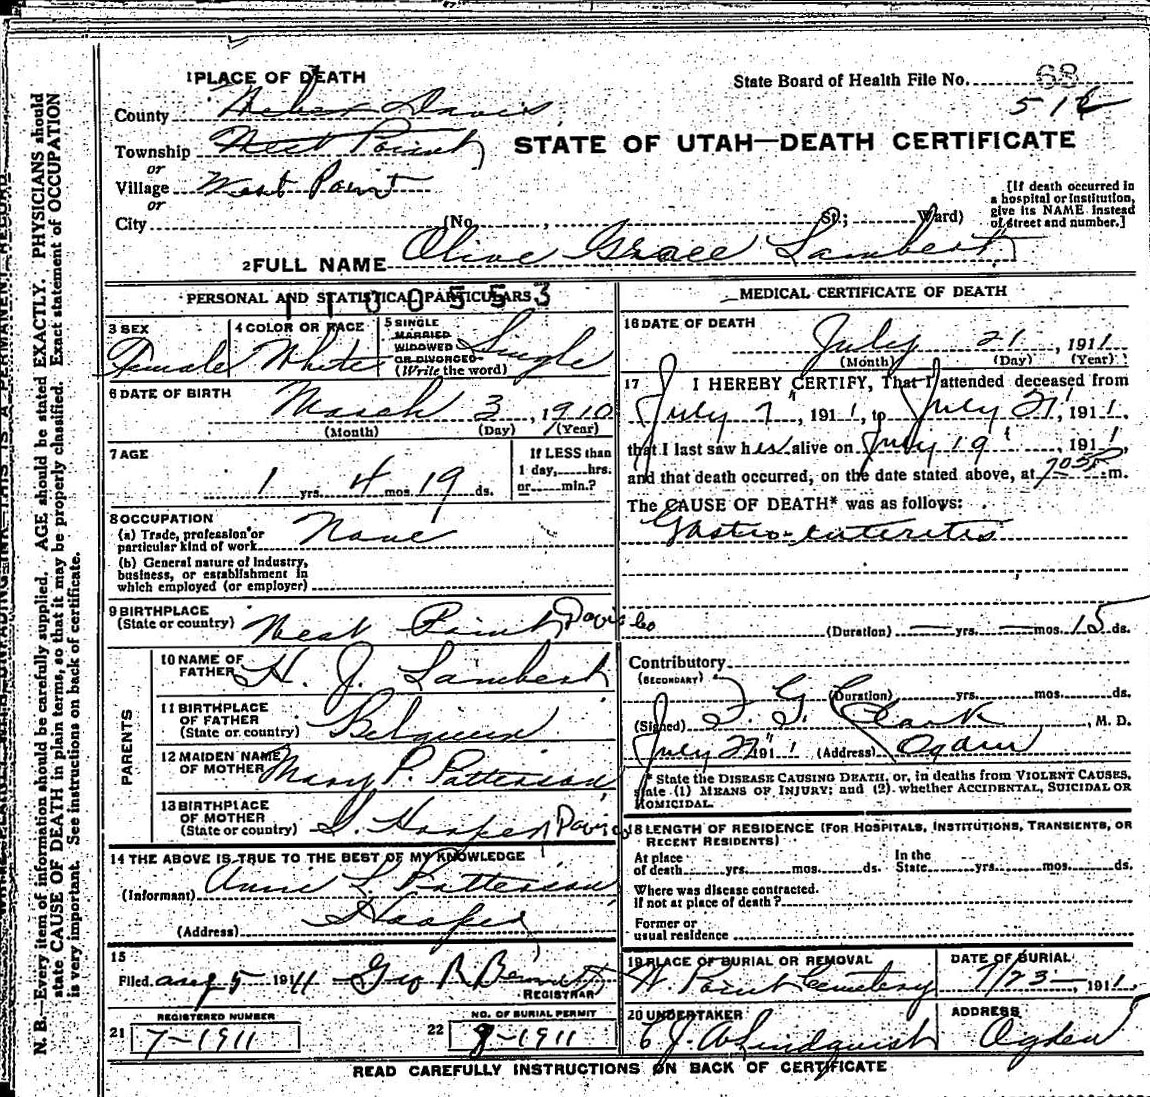 1 PLACE OF DEATH
State Board of Health File No. 68
County Davis
Township West Point
or
STATE OF UTAH—DEATH CERTIFICATE
Village West Point
or
City (No. , St.; Ward)
[If death occurred in
a hospital or institution,
give its NAME instead
of street and number.]
2 FULL NAME Olive Grace Lambert
PERSONAL AND STATISTICAL PARTICULARS
1100553
3 SEX
Female
4 COLOR OR RACE
White
5 SINGLE
MARRIED
WIDOWED
OR DIVORCED
(Write the word)
Single
6 DATE OF BIRTH
March 3, 1910
(Month) (Day) (Year)
7 AGE
1 yrs. 4 mos. 19 ds.
If LESS than
1 day, hrs.
or min.?
8 OCCUPATION
(a) Trade, profession or
particular kind of work None
(b) General nature of industry,
business, or establishment in
which employed (or employer)
9 BIRTHPLACE
(State or country) West Point Davis Co
PARENTS
10 NAME OF
FATHER H. J. Lambert
11 BIRTHPLACE
OF FATHER
(State or country) Belgium
12 MAIDEN NAME
OF MOTHER Mary P. Patterson
13 BIRTHPLACE
OF MOTHER
(State or country) Hooper Davis
14 THE ABOVE IS TRUE TO THE BEST OF MY KNOWLEDGE
(Informant) Anne L. Patterson
(Address) Hooper
15
Filed Aug 5 1911 Geo R Bennett
REGISTRAR
21
REGISTERED NUMBER
7-1911
22
NO. OF BURIAL PERMIT
8-1911
MEDICAL CERTIFICATE OF DEATH
16 DATE OF DEATH
July 21, 1911
(Month) (Day) (Year)
17 I HEREBY CERTIFY, That I attended deceased from
July 7", 1911, to July 21', 1911,
that I last saw her alive on July 19', 1911,
and that death occurred, on the date stated above, at m.
The CAUSE OF DEATH* was as follows:
Gastro-enteritis
(Duration) — yrs. — mos. 15 ds.
Contributory
(SECONDARY)
(Duration) yrs. mos. ds.
(Signed) F. G. Clark, M. D.
July 22" 1911 (Address) Ogden
* State the DISEASE CAUSING DEATH, or, in deaths from VIOLENT CAUSES,
state (1) MEANS OF INJURY; and (2) whether ACCIDENTAL, SUICIDAL OR
HOMICIDAL.
18 LENGTH OF RESIDENCE (FOR HOSPITALS, INSTITUTIONS, TRANSIENTS, OR
RECENT RESIDENTS)
At place
of death yrs. mos. ds.
In the
State yrs. mos. ds.
Where was disease contracted.
if not at place of death?
Former or
usual residence
19 PLACE OF BURIAL OR REMOVAL
W. Point Cemetery
DATE OF BURIAL
7/23—, 1911
20 UNDERTAKER
C J. A Lindquist
ADDRESS
Ogden
READ CAREFULLY INSTRUCTIONS ON BACK OF CERTIFICATE
N. B.—Every item of information should be carefully supplied. AGE should be stated EXACTLY. PHYSICIANS should
state CAUSE OF DEATH in plain terms, so that it may be properly classified. Exact statement of OCCUPATION
is very important. See instructions on back of certificate.
THIS IS A PERMANENT RECORD